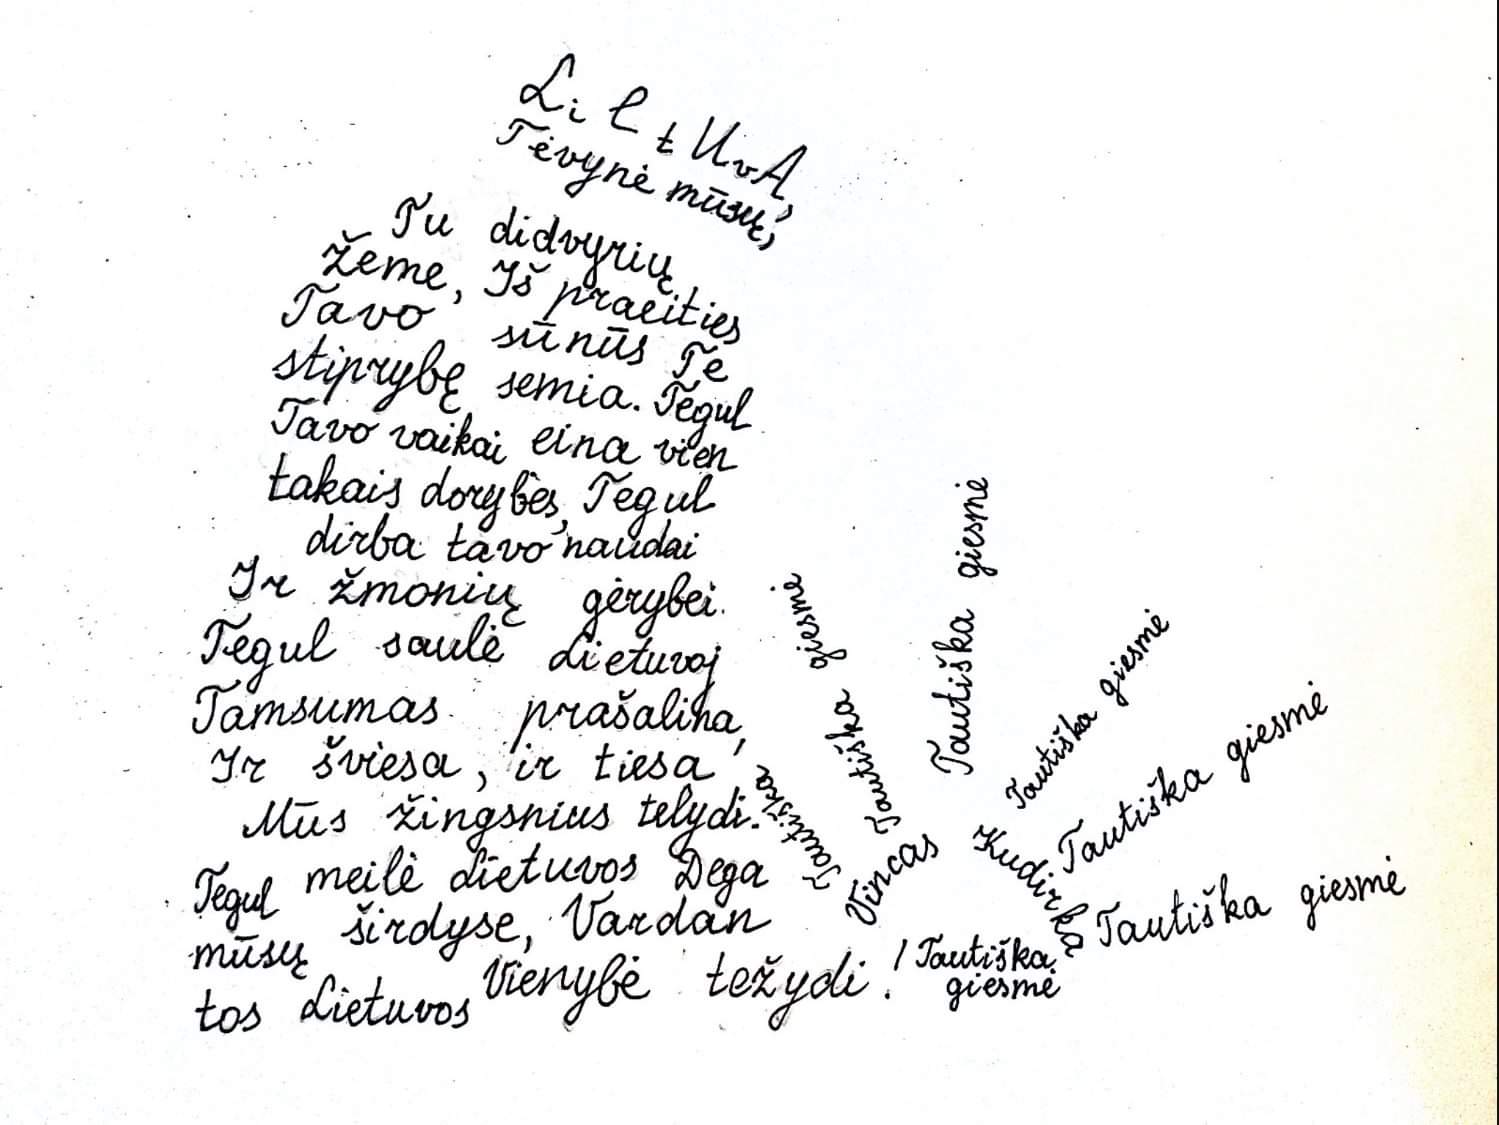 LiEtUvA,
Tėvynė mūsų,
Tu didvyrių
žeme, Iš praeities
Tavo sūnūs Te
stiprybę semia. Tegul
Tavo vaikai eina vien
takais dorybės, Tegul
dirba tavo naudai
Ir žmonių gėrybei.
Tegul saulė Lietuvoj
Tamsumas prašalina,
Ir šviesa, ir tiesa
Mūs žingsnius telydi.
Tegul meilė Lietuvos Dega
mūsų širdyse, Vardan
tos Lietuvos Vienybė težydi!
Tautiška
Tautiška giesmė
Tautiška giesmė
Tautiška giesmė
Tautiška giesmė
Tautiška giesmė
Vincas Kudirka
! Tautiška
giesmė